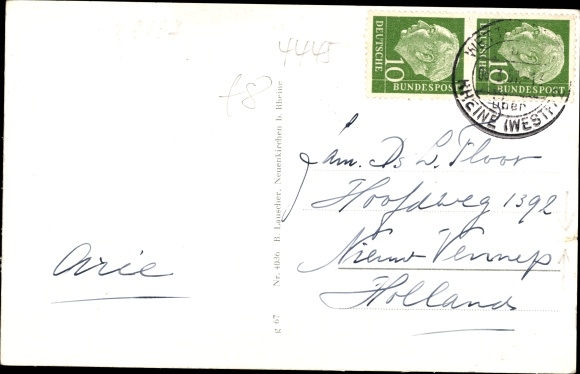 4445
f8
DEUTSCHE
10
BUNDESPOST
DEUTSCHE
10
BUNDESPOST
über
RHEINE (WESTF)
Fam. Ds L. Floor
Hoofdweg 1392
Nieuw-Vennep
Holland
Arie
g 67 Nr. 4036 B. Lauscher, Neuenkirchen b. Rheine